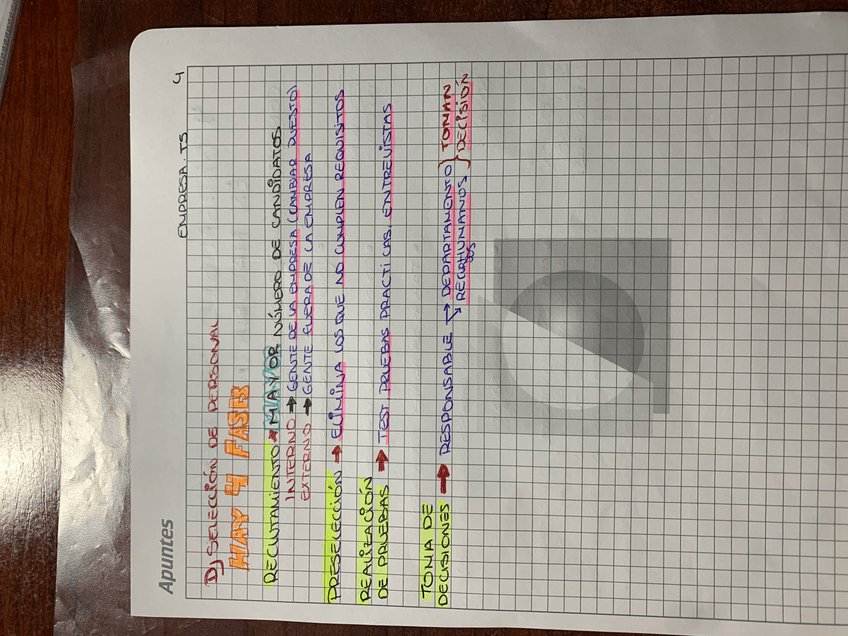 Apuntes
EMPRESA. T5
4
D) SELECCIÓN DE PERSONAL
HAY 4 FASES
RECLUTAMIENTO → MAYOR NÚMERO DE CANDIDATOS
INTERNO → GENTE DE LA EMPRESA (CAMBIAR PUESTO)
EXTERNO → GENTE FUERA DE LA EMPRESA
PRESELECCIÓN → ELIMINA LOS QUE NO CUMPLEN REQUISITOS
REALIZACIÓN
DE PRUEBAS → TEST PRUEBAS PRACTICAS. ENTREVISTAS
TOMA DE
DECISIONES → RESPONSABLE → DEPARTAMENTO } TOMAN
RECURHUMANOS } DECISIÓN
SOS